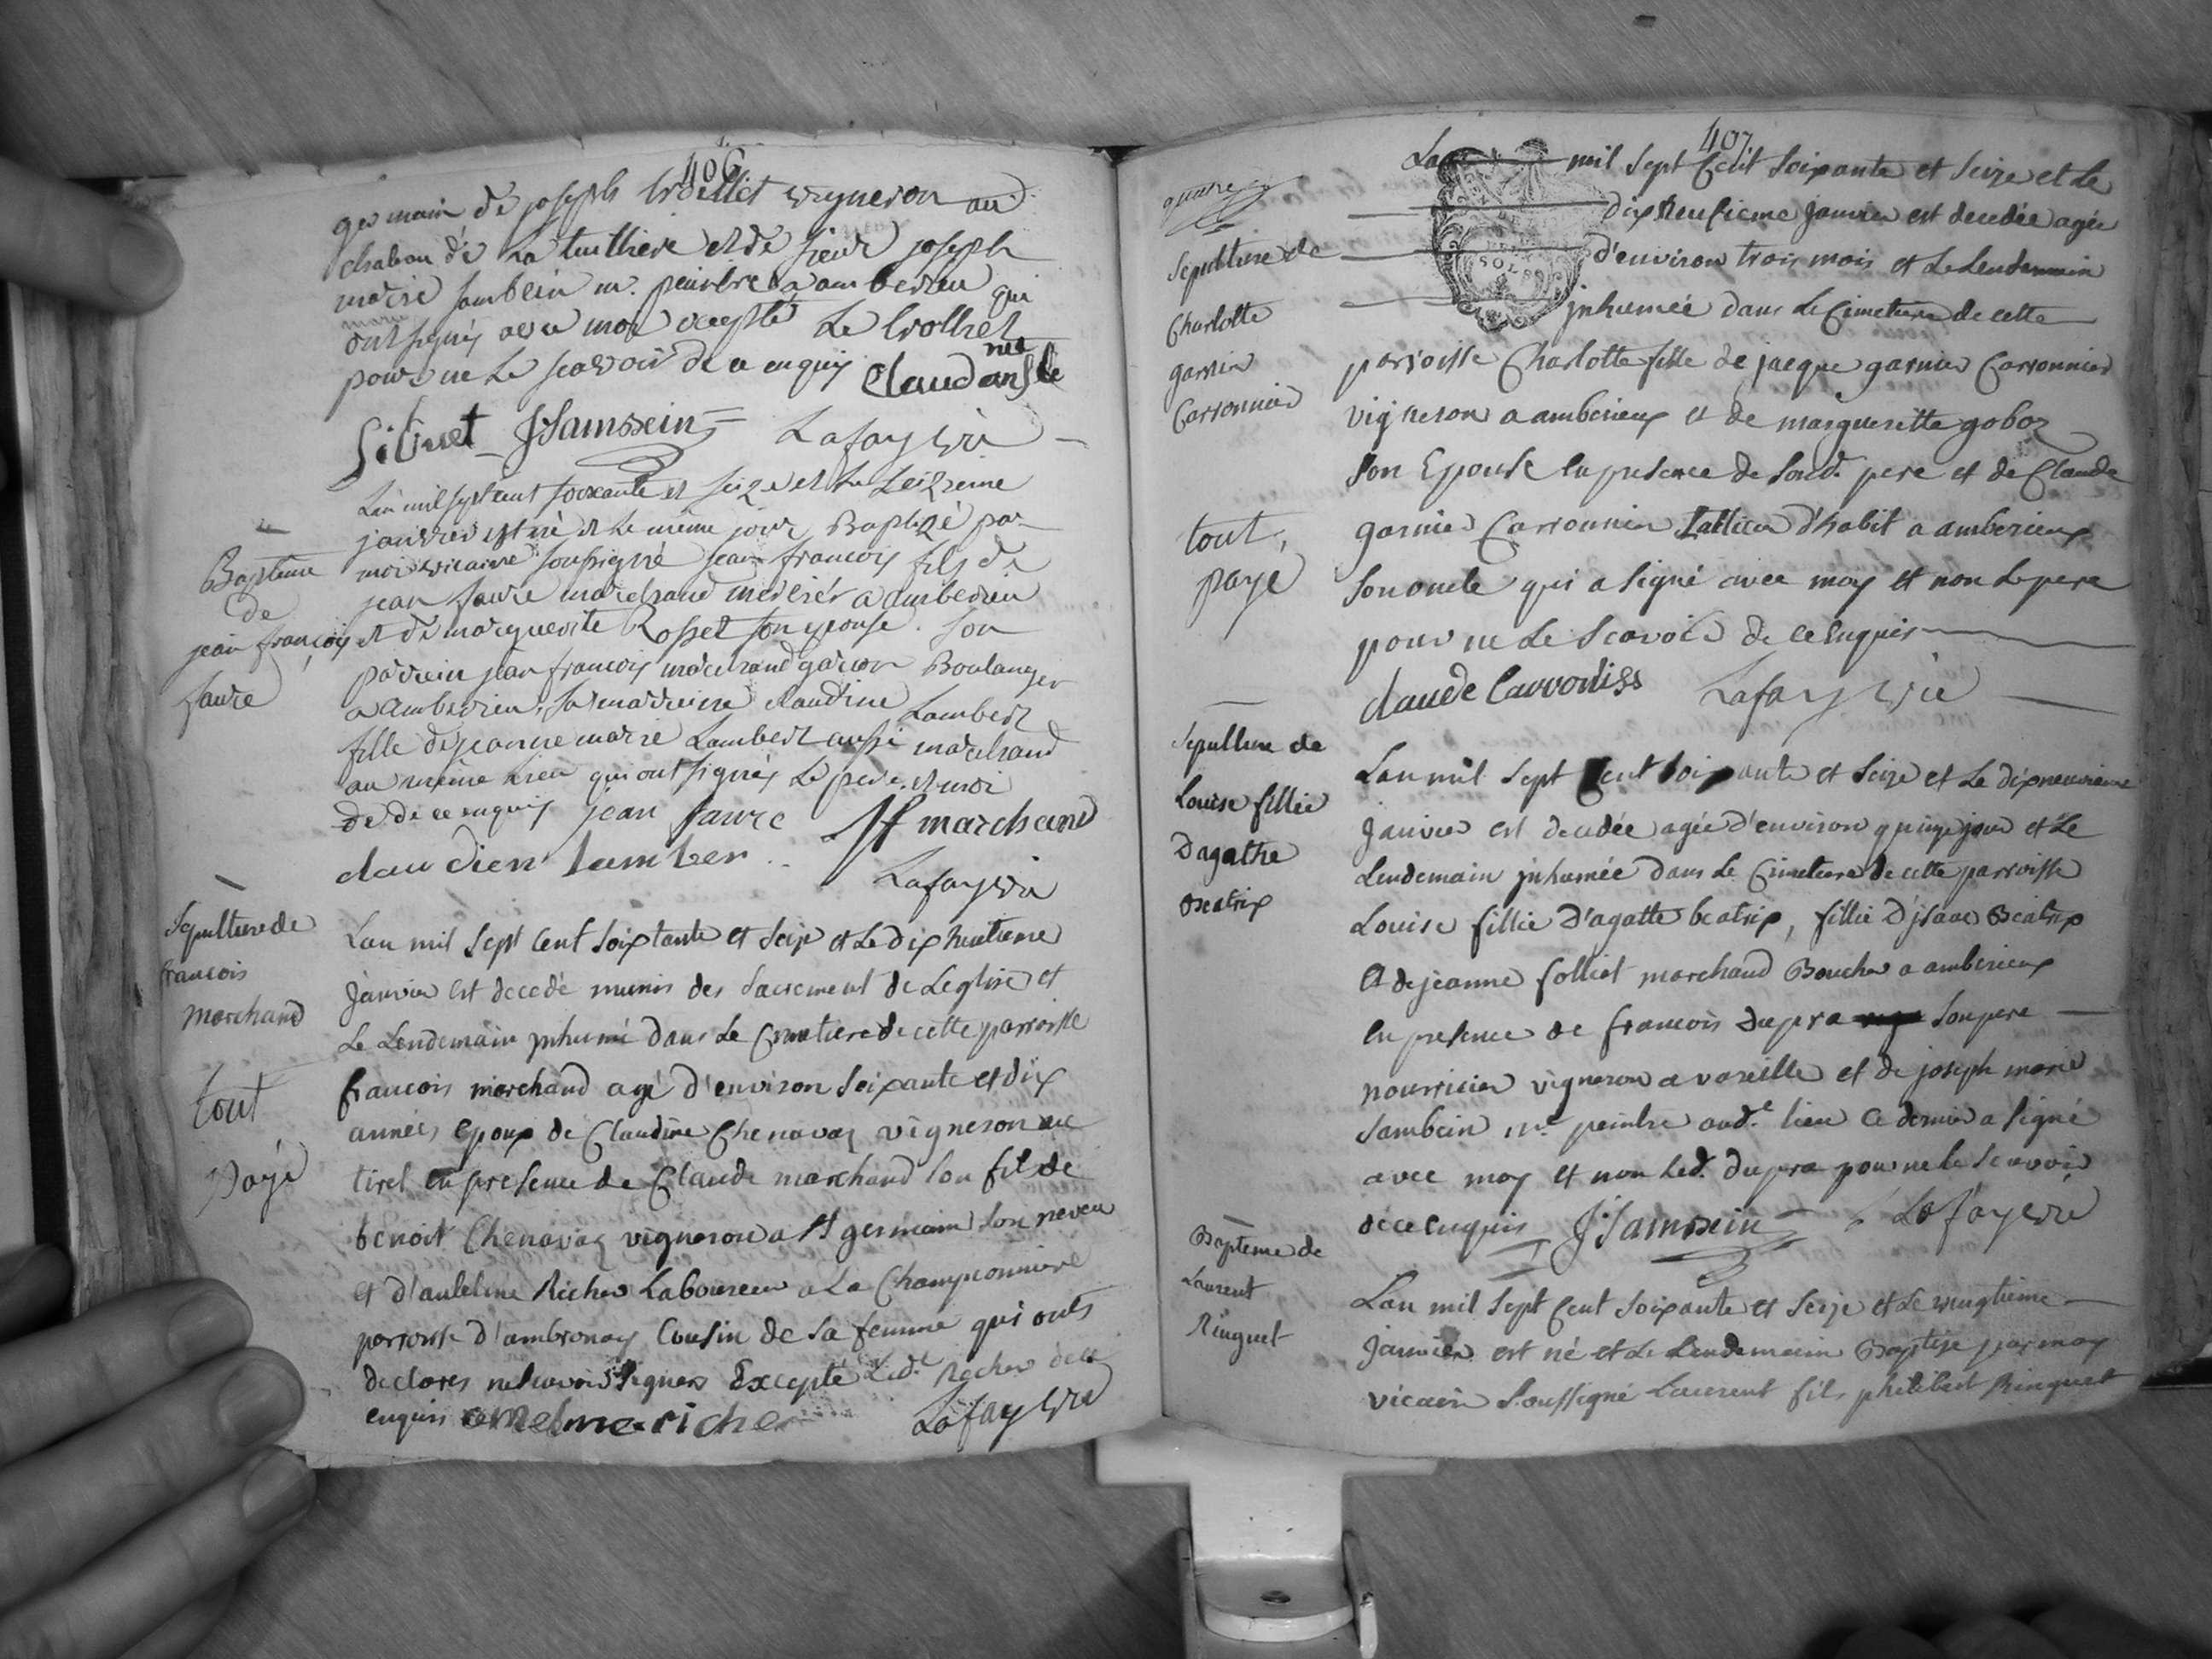 406
germain de joseph trolliet vigneron au
chabou de La tuilliere et de sieur joseph
marie sambein m. peintre a amberieu qui
ont signés avec moi excepté Le trolliet
pour ne Le scavoir de ce enquis Claudan
Silvuet JSambein Lafay vic
L'an mil sept cent soixante et seize et Le seizieme
janvier est né et Le meme jour Baptizé par
moi vicaire soussigné jean francois fils de
jean faure marchand mercier a amberieu
et de marguerite Rosset son epouse. son
parrein jean francois marchand garcon Boulanger
a Amberieu, sa marreine claudine Lambert
fille de jeanne marie Lambert aussi marchand
au même Lieu qui ont signés Le pere et moi
de de ce enquis jean faure Jf marchand
claudien lamber
Lafay vic
Bapteme
de
jean francois
faure
Sepulture de
francois
marchand
tout
payé
Lan mil sept Cent soixtante et seize et Le dix huitieme
janvier est decedé munis des sacrement de Leglise et
Le Lendemain inhumé dans Le Cimetiere de cette parroisse
francois marchand agé d'environ soixante et dix
années Epoux de Claudine Chenavaz vigneron au
tiret en presence de Claude marchand son fils de
benoit Chenavaz vigneron a St germain son neveu
et d'antelme Richer Laboureur a La Championniere
parroisse d'ambronay Cousin de sa femme qui onts
declarés ne scavoir signer Excepté Led. Richer de ce
enquis entelme richer Lafay vic
407
quatre
Sepulture de
Charlotte
garnier
Carronnier
tout
payé
SOLS
Lan mil sept Cent soixante et seize et Le
dix neufieme janvier est decedée agée
d'environ trois mois et Le Lendemain
inhumée dans Le Cimetiere de cette
parroisse Charlotte fille de jacque garnier Carronnier
vigneron a amberieux et de marguerite goboz
son Epouse En presence de sond. pere et de Claude
garnier Carronnier Tallieur d'habit a amberieux
son oncle qui a signé avec moy et non Le pere
pour ne Le scavoir de ce Enquis
claude Lafay vic
Sepulture de
Louise fillie
Dagathe
Beatrix
Lan mil sept Cent soixante et seize et Le dixneuvieme
janvier est decedée agée d'environ quinze jour et Le
Lendemain inhumée dans Le Cimetiere de cette parroisse
Louise fillie d'agatte beatrix, fillie d'jsaac Beatrix
et de jeanne folliet marchand Boucher a amberieux
En presence de francois Dupra son pere
nourricier vigneron a vareille et de joseph marie
sambein me. peintre aud. lieu Ce dernier a signé
avec moy et non Led. Dupra pour ne le scavoir
de ce Enquis JSambein Lafay vic
Bapteme de
Laurent
Ringuet
Lan mil sept Cent soixante et seize et Le vingtieme
janvier est né et Le Lendemain Baptise par moy
vicaire soussigné Laurent fils philibert Ringuet